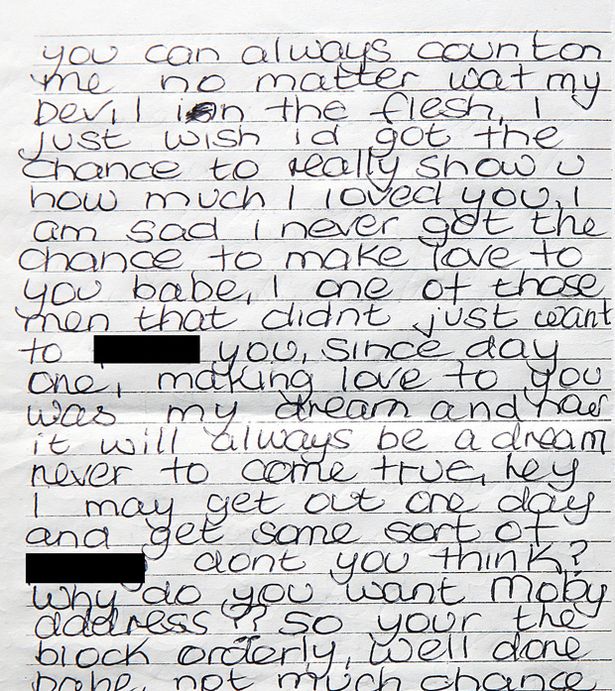 you can always count on
me no matter wat my
Devil in the flesh, I
just wish id got the
chance to really show u
how much I loved you, I
am sad I never got the
chance to make love to
you babe, I one of those
men that didnt just want
to you, since day
one, making love to you
was my dream and now
it will always be a dream
never to come true, hey
I may get out one day
and get some sort of
dont you think?
Why do you want Moby
address?? So your the
block orderly, well done
babe, not much chance